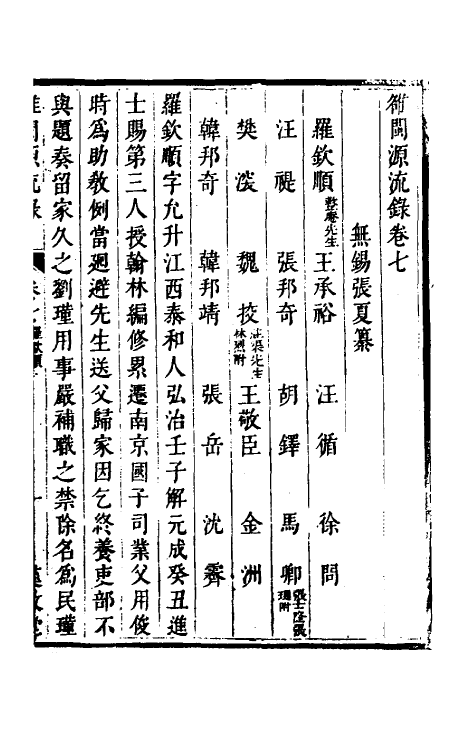 雒閩源流錄卷七
無錫張夏纂
羅欽順整庵先生 王承裕 汪循 徐問
汪禔 張邦奇 胡鐸 馬卿張士隆張璉附
樊深 魏校莊渠先生林烈附 王敬臣 金洲
韓邦奇 韓邦靖 張岳 沈霽
羅欽順字允升江西泰和人弘治壬子解元成癸丑進
士賜第三人授翰林編修累遷南京國子司業父用俊
時為助教例當迴避先生送父歸家因乞終養吏部不
與題奏留家久之劉瑾用事嚴補職之禁除名為民瑾
雒閩源流錄 卷七羅欽順 一